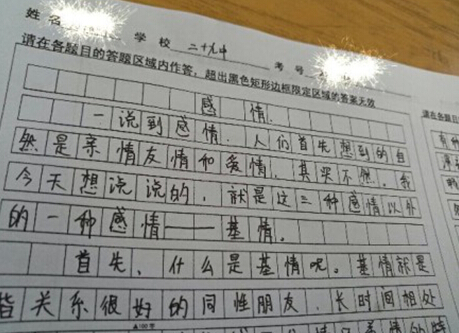 姓名 学校 二十九中 考号
请在各题目的答题区域内作答，超出黑色矩形边框限定区域的答案无效
感情.
一说到感情.人们首先想到的自
然是亲情友情和爱情,其实不然.我
今天想说说的,就是这三种感情以外
的一种感情——基情。
首先、什么是基情呢。基情就是
指关系很好的同性朋友、长时间相处
请在各题目